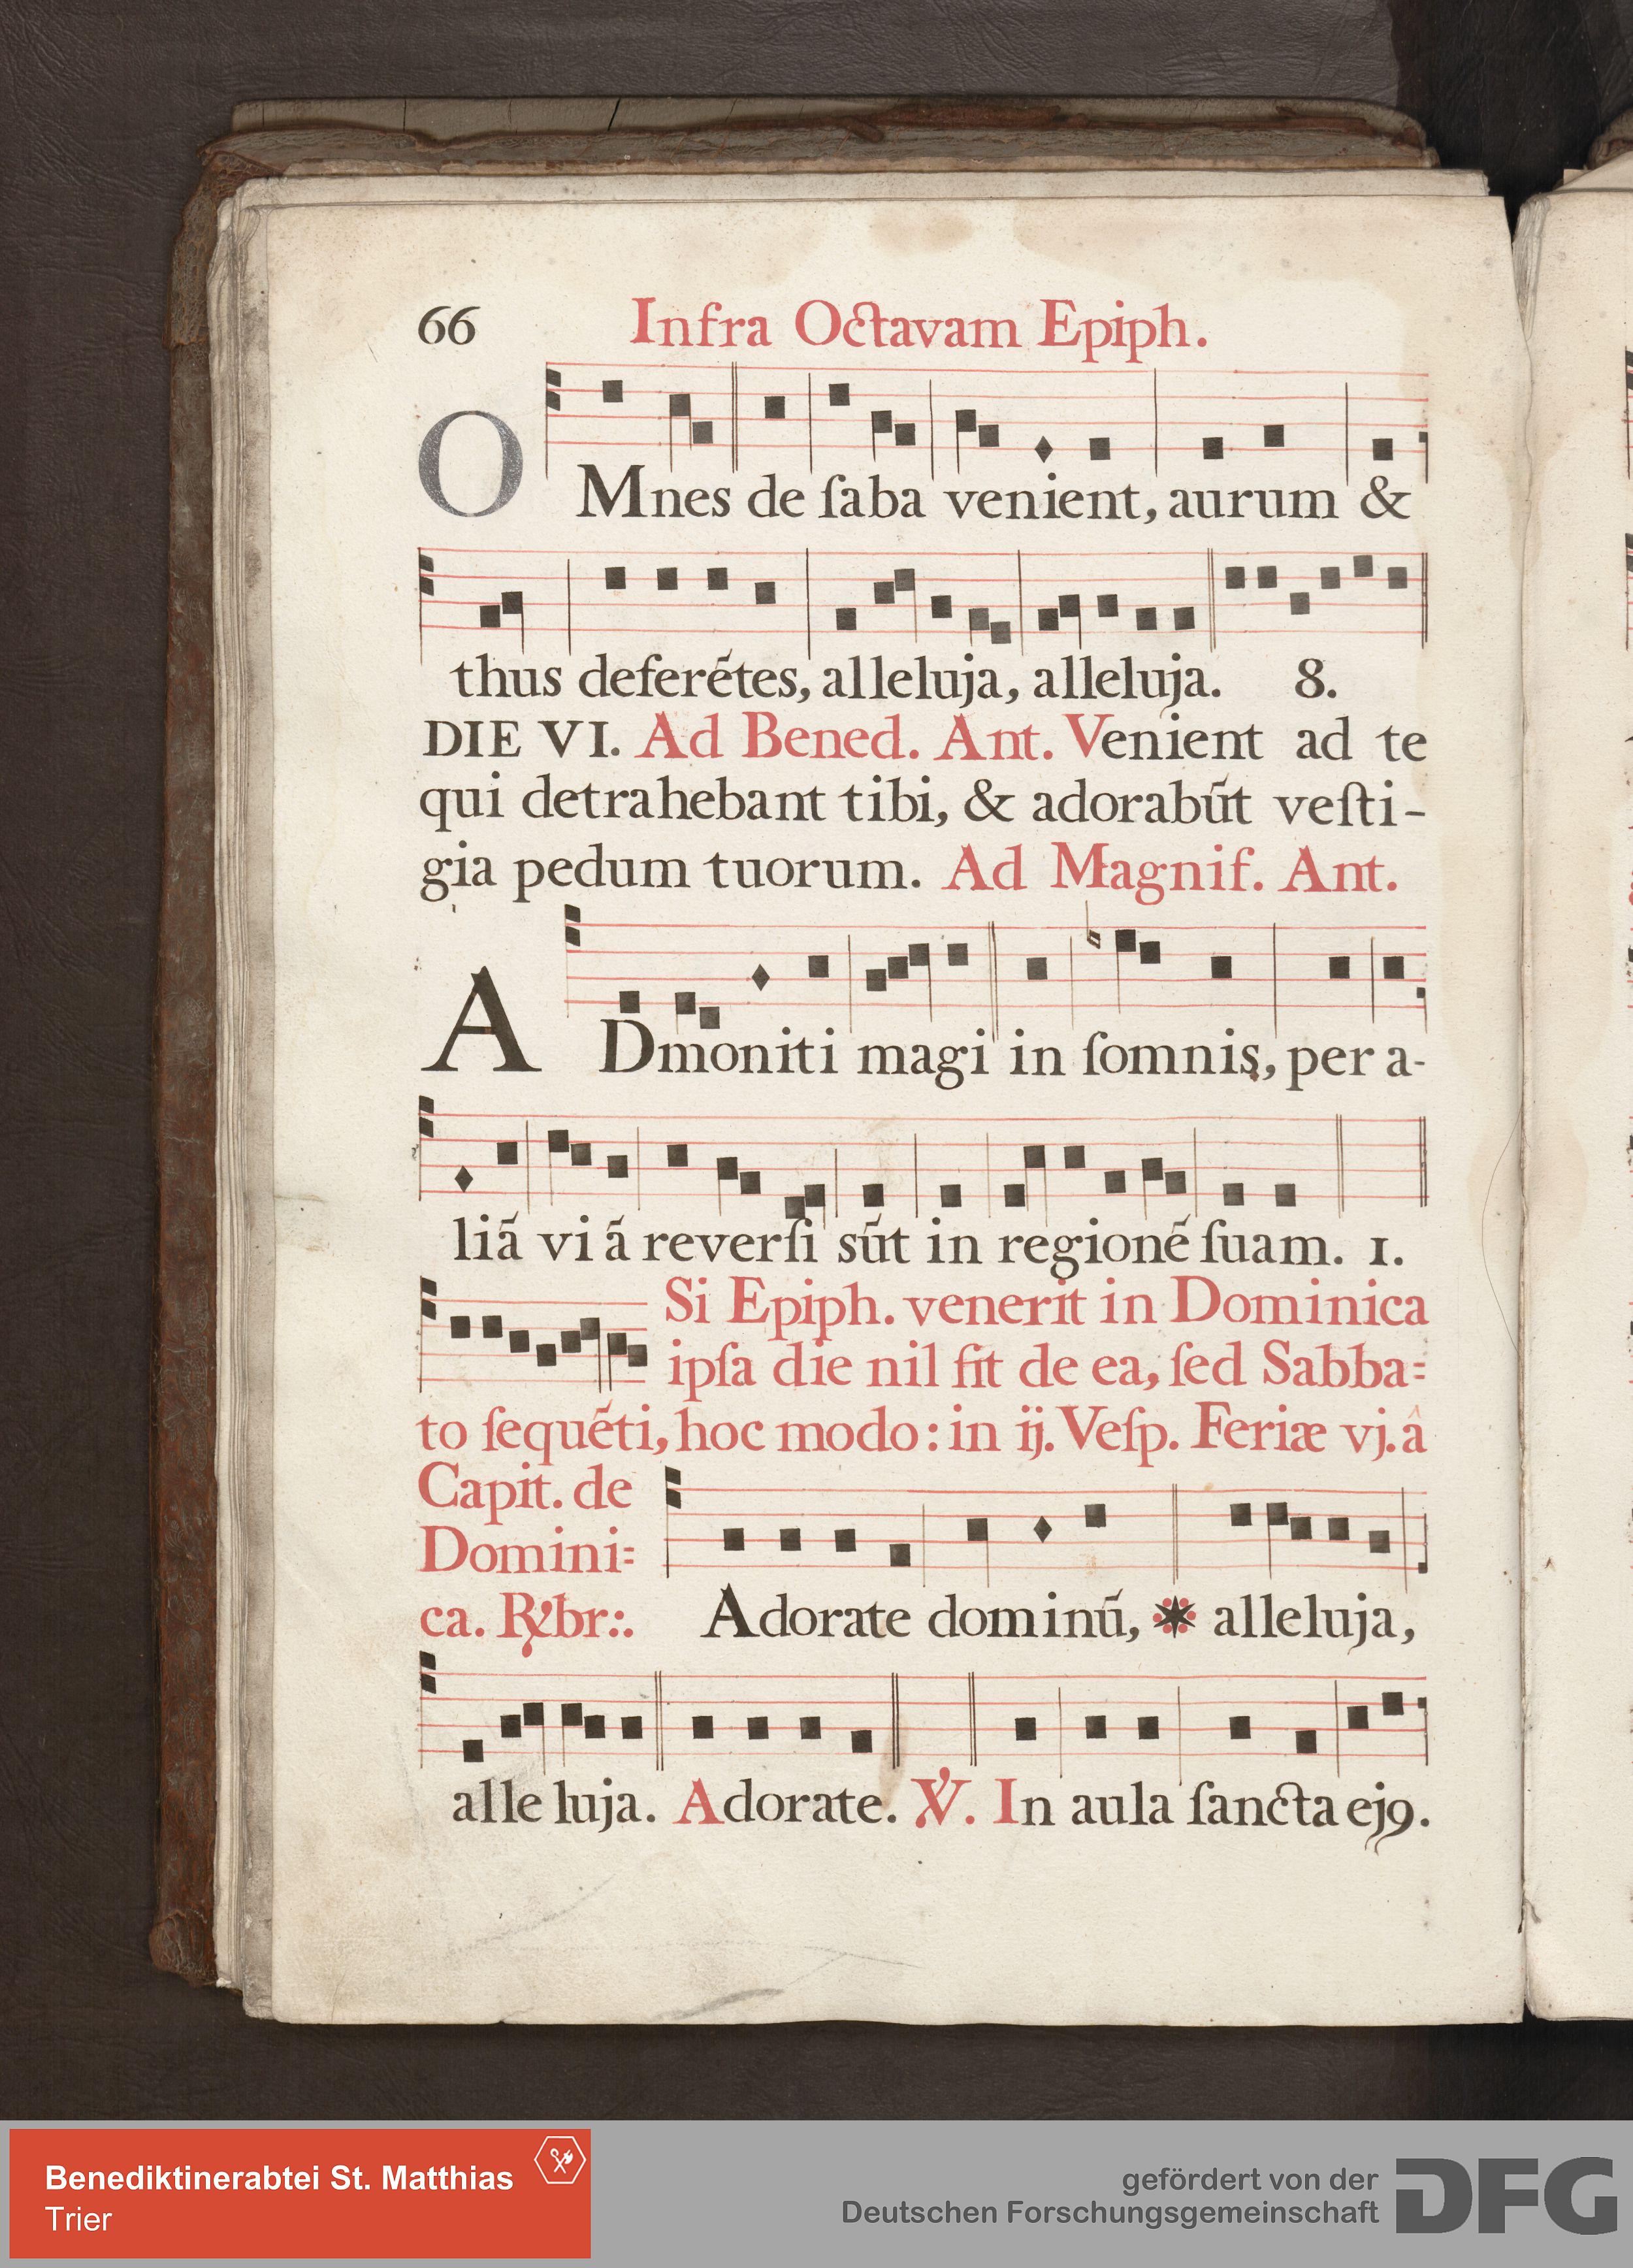 66 Infra Octavam Epiph.
OMnes de ſaba venient, aurum &
thus deferẽtes, alleluja, alleluja. 8.
DIE VI. Ad Bened. Ant. Venient ad te
qui detrahebant tibi, & adorabũt veſti-
gia pedum tuorum. Ad Magnif. Ant.
ADmoniti magi in ſomnis, per a-
liã viã reverſi sũt in regionẽ ſuam. 1.
Si Epiph. venerit in Dominica
ipſa die nil fit de ea, ſed Sabba=
to ſequẽti, hoc modo: in ij. Veſp. Feriæ vj. â
Capit. de
Domini=
ca. ℞br:.
Adorate dominũ, * alleluja,
alleluja. Adorate. ℣. In aula ſancta ejꝯ.
Benediktinerabtei St. Matthias
Trier
gefördert von der
Deutschen Forschungsgemeinschaft
DFG